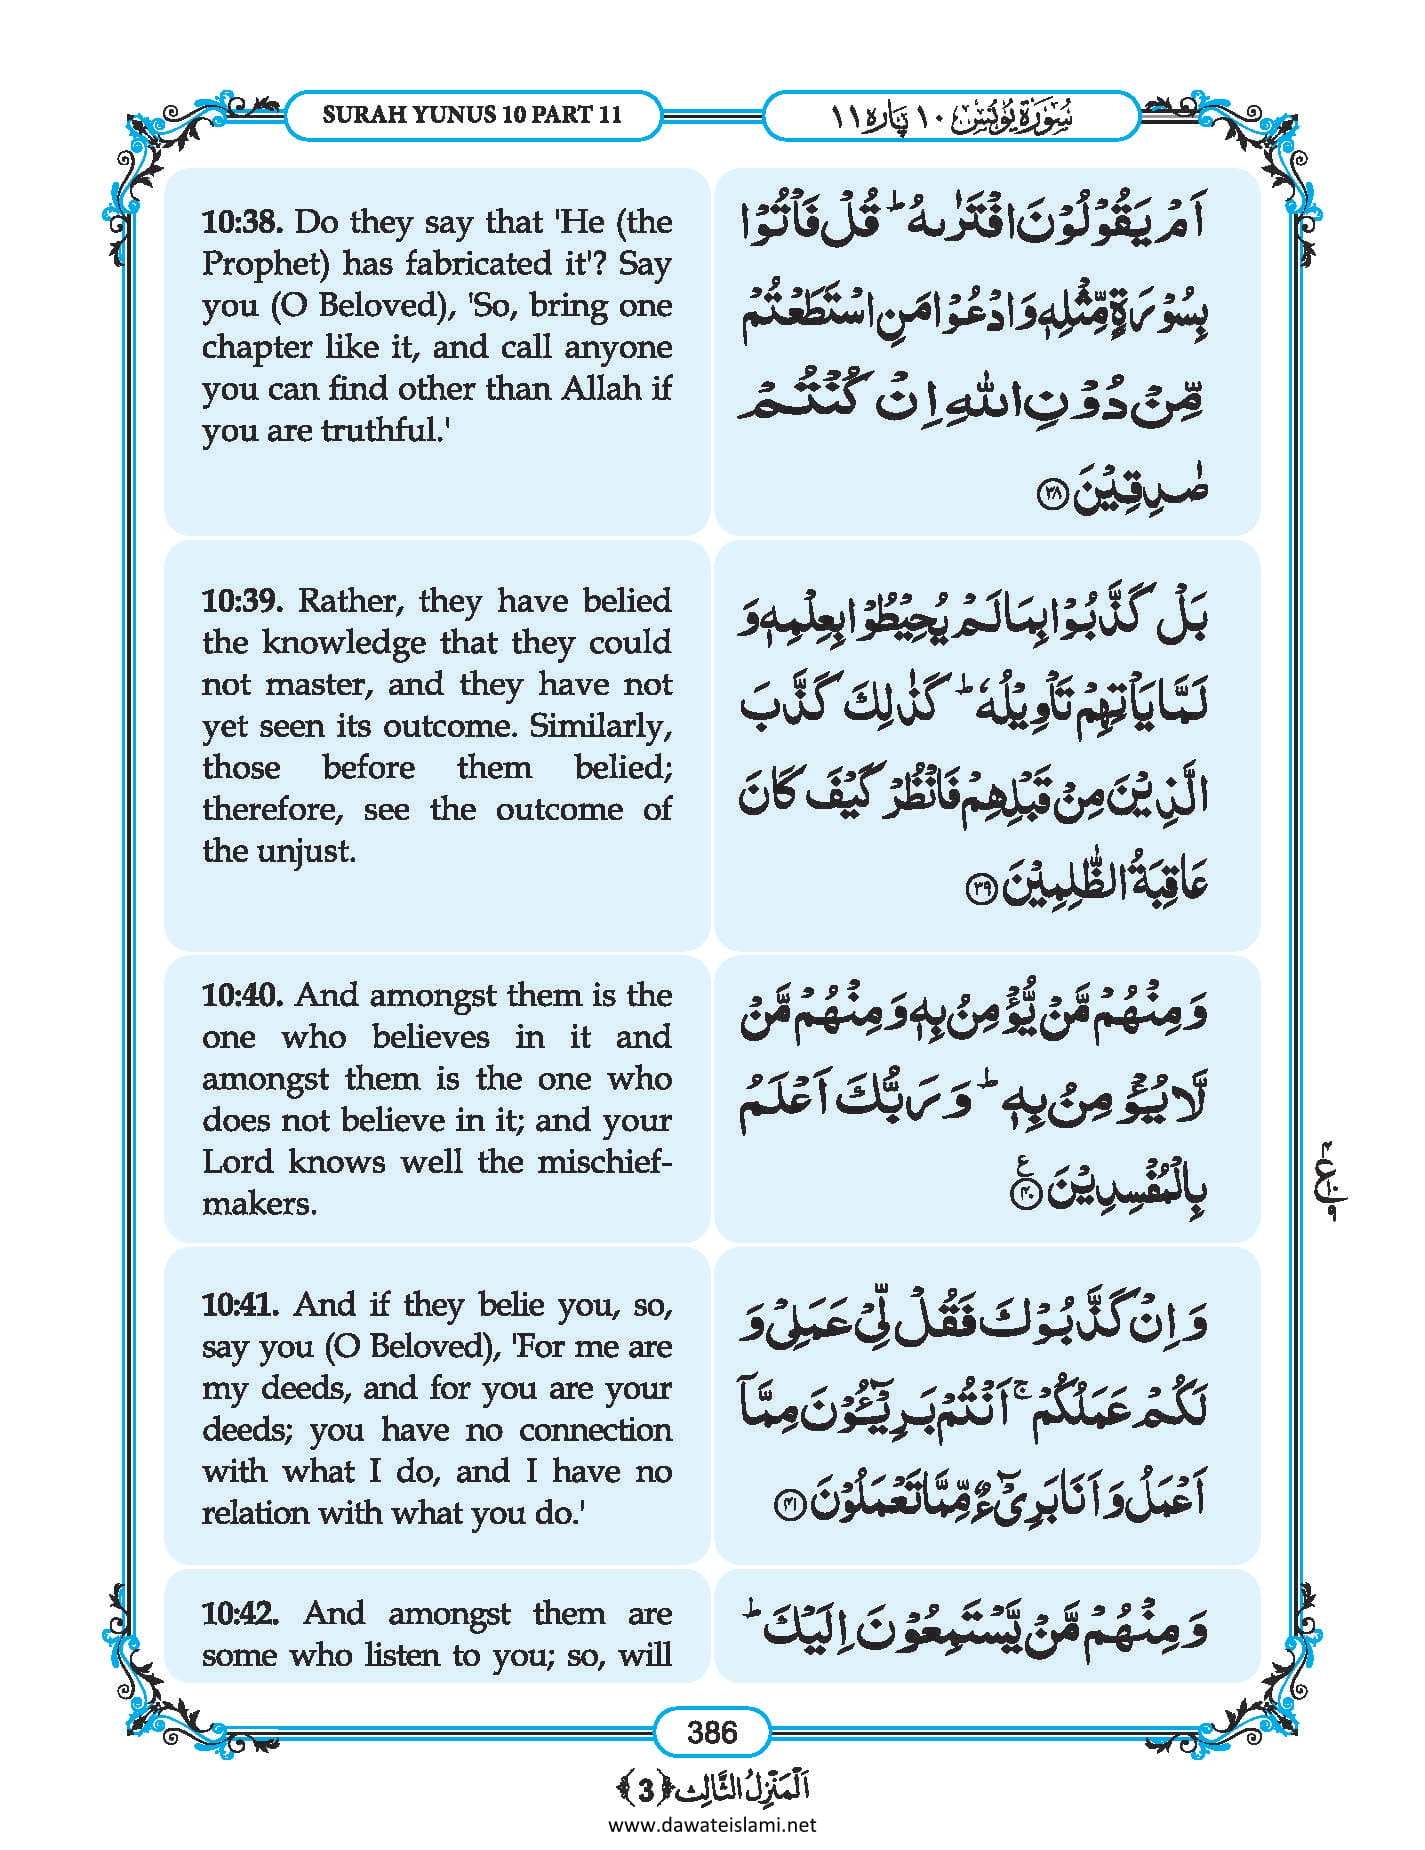 SURAH YUNUS 10 PART 11
سُوْرَةُ يُوْنُس ١٠ پَارَہ ١١
10:38. Do they say that 'He (the
Prophet) has fabricated it'? Say
you (O Beloved), 'So, bring one
chapter like it, and call anyone
you can find other than Allah if
you are truthful.'
اَمْ يَقُوْلُوْنَ افْتَرٰىهُ ؕ قُلْ فَاْتُوْا
بِسُوْرَةٍ مِّثْلِهٖ وَ ادْعُوْا مَنِ اسْتَطَعْتُمْ
مِّنْ دُوْنِ اللّٰهِ اِنْ كُنْتُمْ
صٰدِقِيْنَ ﴿۳۸﴾
10:39. Rather, they have belied
the knowledge that they could
not master, and they have not
yet seen its outcome. Similarly,
those before them belied;
therefore, see the outcome of
the unjust.
بَلْ كَذَّبُوْا بِمَا لَمْ يُحِيْطُوْا بِعِلْمِهٖ وَ
لَمَّا يَاْتِهِمْ تَاْوِيْلُهٗ ؕ كَذٰلِكَ كَذَّبَ
الَّذِيْنَ مِنْ قَبْلِهِمْ فَانْظُرْ كَيْفَ كَانَ
عَاقِبَةُ الظّٰلِمِيْنَ ﴿۳۹﴾
10:40. And amongst them is the
one who believes in it and
amongst them is the one who
does not believe in it; and your
Lord knows well the mischief-
makers.
وَ مِنْهُمْ مَّنْ يُّؤْمِنُ بِهٖ وَ مِنْهُمْ مَّنْ
لَّا يُؤْمِنُ بِهٖ ؕ وَ رَبُّكَ اَعْلَمُ
بِالْمُفْسِدِيْنَ ﴿۴۰﴾ ع
۴
ع
۱۰
۹
10:41. And if they belie you, so,
say you (O Beloved), 'For me are
my deeds, and for you are your
deeds; you have no connection
with what I do, and I have no
relation with what you do.'
وَ اِنْ كَذَّبُوْكَ فَقُلْ لِّيْ عَمَلِيْ وَ
لَكُمْ عَمَلُكُمْ ۚ اَنْتُمْ بَرِيْٓـُٔوْنَ مِمَّاۤ
اَعْمَلُ وَ اَنَا بَرِيْٓءٌ مِّمَّا تَعْمَلُوْنَ ﴿۴۱﴾
10:42. And amongst them are
some who listen to you; so, will
وَ مِنْهُمْ مَّنْ يَّسْتَمِعُوْنَ اِلَيْكَ ؕ
386
اَلْمَنْزِلُ الثَّالِث ﴿3﴾
www.dawateislami.net